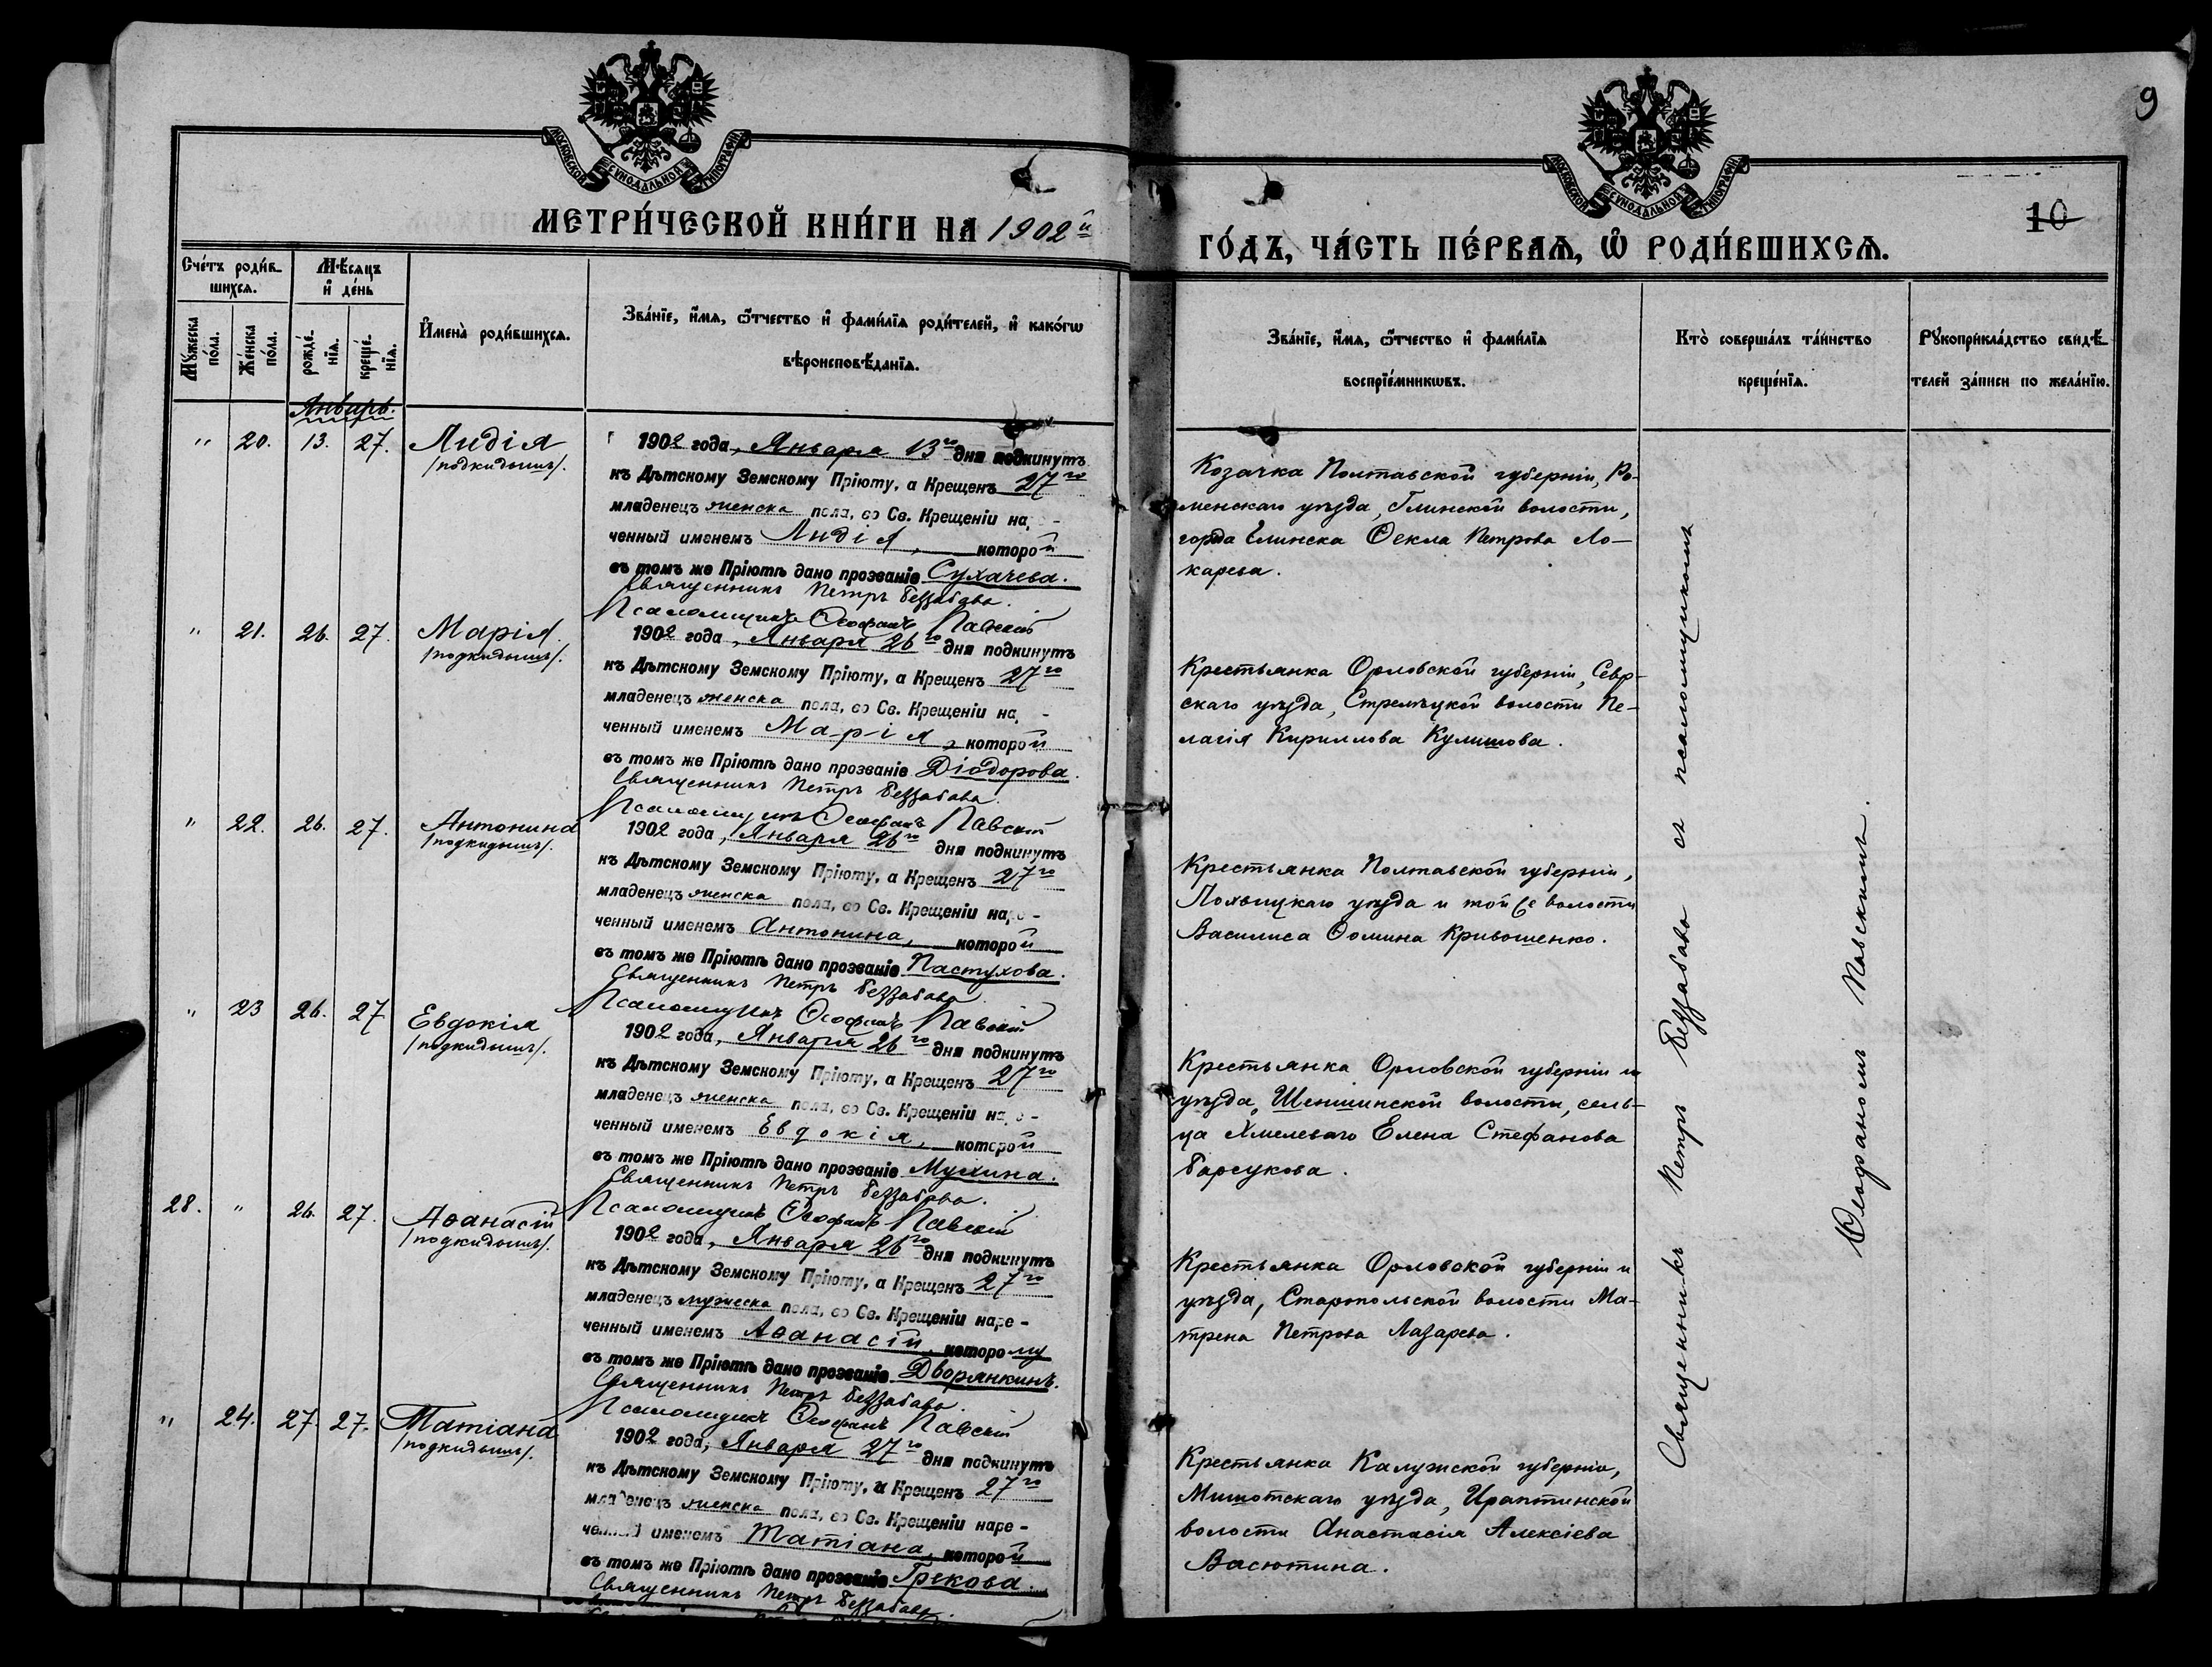 9
МОСКОВСКОЙ СѴНОДАЛЬНОЙ ТИПОГРАФІИ
МОСКОВСКОЙ СѴНОДАЛЬНОЙ ТИПОГРАФІИ
10
МЕТРИ́ЧЕСКОЙ КНИ́ГИ НА 1902й
ГО́ДЪ, ЧА́СТЬ ПЕ́РВАѦ, Ѿ РОДИ́ВШИХСѦ.
Сче́тъ роди́в-
шихсѧ.
Мѣ́сѧцъ
и҆ де́нь
Мꙋ́жеска
по́ла.
Же́нска
по́ла.
рожде́-
нїѧ.
креще́-
нїѧ.
И҆мена̀ роди́вшихсѧ.
Зва́нїе, и҆́мѧ, ѻ҆́тчество и҆ фами́лїѧ роди́телей, и҆ како́гѡ
вѣроисповѣ́данїѧ.
Зва́нїе, и҆́мѧ, ѻ҆́тчество и҆ фами́лїѧ
воспрїе́мникѡвъ.
Кто̀ соверша́лъ та́инство
креще́нїѧ.
Рꙋкоприкла́дство свидѣ́-
телей за́писи по жела́нїю.
Январь.
" 20. 13. 27. Лидія
/подкидышъ/.
1902 года, Января 13го дня подкинутъ
къ Дѣтскому Земскому Пріюту, а Крещенъ 27го
младенецъ женска пола, во Св. Крещеніи наре-
ченный именемъ Лидія, которой
въ томъ же Пріютѣ дано прозваніе Сухачева.
Священникъ Петръ Беззабава.
Псаломщикъ Ѳеофанъ Павскій
Козачка Полтавской губерніи, Ро-
менскаго уѣзда, Глинской волости,
города Глинска Ѳекла Петрова Ло-
карева.
" 21. 26. 27. Марія.
/подкидышъ/.
1902 года, Января 26го дня подкинутъ
къ Дѣтскому Земскому Пріюту, а Крещенъ 27го
младенецъ женска пола, во Св. Крещеніи на -
ченный именемъ Марія, которой
въ томъ же Пріютѣ дано прозваніе Діодорова.
Священникъ Петръ Беззабава.
Псаломщикъ Ѳеофанъ Павскій
Крестьянка Орловской губерніи, Сѣв-
скаго уѣзда, Стрелецкой волости Пе-
лагія Кириллова Кулишова.
" 22. 26. 27. Антонина
/подкидышъ/.
1902 года, Января 26го дня подкинутъ
къ Дѣтскому Земскому Пріюту, а Крещенъ 27го
младенецъ женска пола, во Св. Крещеніи наре-
ченный именемъ Антонина, которой
въ томъ же Пріютѣ дано прозваніе Пастухова.
Священникъ Петръ Беззабава.
Псаломщикъ Ѳеофанъ Павскій
Крестьянка Полтавской губерніи,
Лохвицкаго уѣзда и той же волости
Василиса Ѳомина Кривошенко.
" 23 26. 27 Евдокія
/подкидышъ/.
1902 года, Января 26го дня подкинутъ
къ Дѣтскому Земскому Пріюту, а Крещенъ 27го
младенецъ женска пола, во Св. Крещеніи наре-
ченный именемъ Евдокія, которой
въ томъ же Пріютѣ дано прозваніе Мухина.
Священникъ Петръ Беззабава.
Псаломщикъ Ѳеофанъ Павскій
Крестьянка Орловской губерніи и
уѣзда, Шеншинской волости, сель-
ца Хмелеваго Елена Стефанова
Барсукова.
28. " 26. 27. Аѳанасій
/подкидышъ/.
1902 года, Января 26го дня подкинутъ
къ Дѣтскому Земскому Пріюту, а Крещенъ 27го
младенецъ мужеска пола, во Св. Крещеніи наре-
ченный именемъ Аѳанасій, которому
въ томъ же Пріютѣ дано прозваніе Дворянкинъ.
Священникъ Петръ Беззабава.
Псаломщикъ Ѳеофанъ Павскій
Крестьянка Орловской губерніи и
уѣзда, Старопольской волости Ма-
трена Петрова Лазарева.
" 24. 27. 27. Татіана
/подкидышъ/.
1902 года, Января 27го дня подкинутъ
къ Дѣтскому Земскому Пріюту, и Крещенъ 27го
младенецъ женска пола, во Св. Крещеніи наре-
ченный именемъ Татіана, которой
въ томъ же Пріютѣ дано прозваніе Грекова.
Священникъ Петръ Беззабава.
Крестьянка Калужской губерніи,
уѣзда,
волости Анастасія Алексіева
Васютина.
Священникъ Петръ Беззабава съ псаломщикомъ
Ѳеофаномъ Павскимъ.